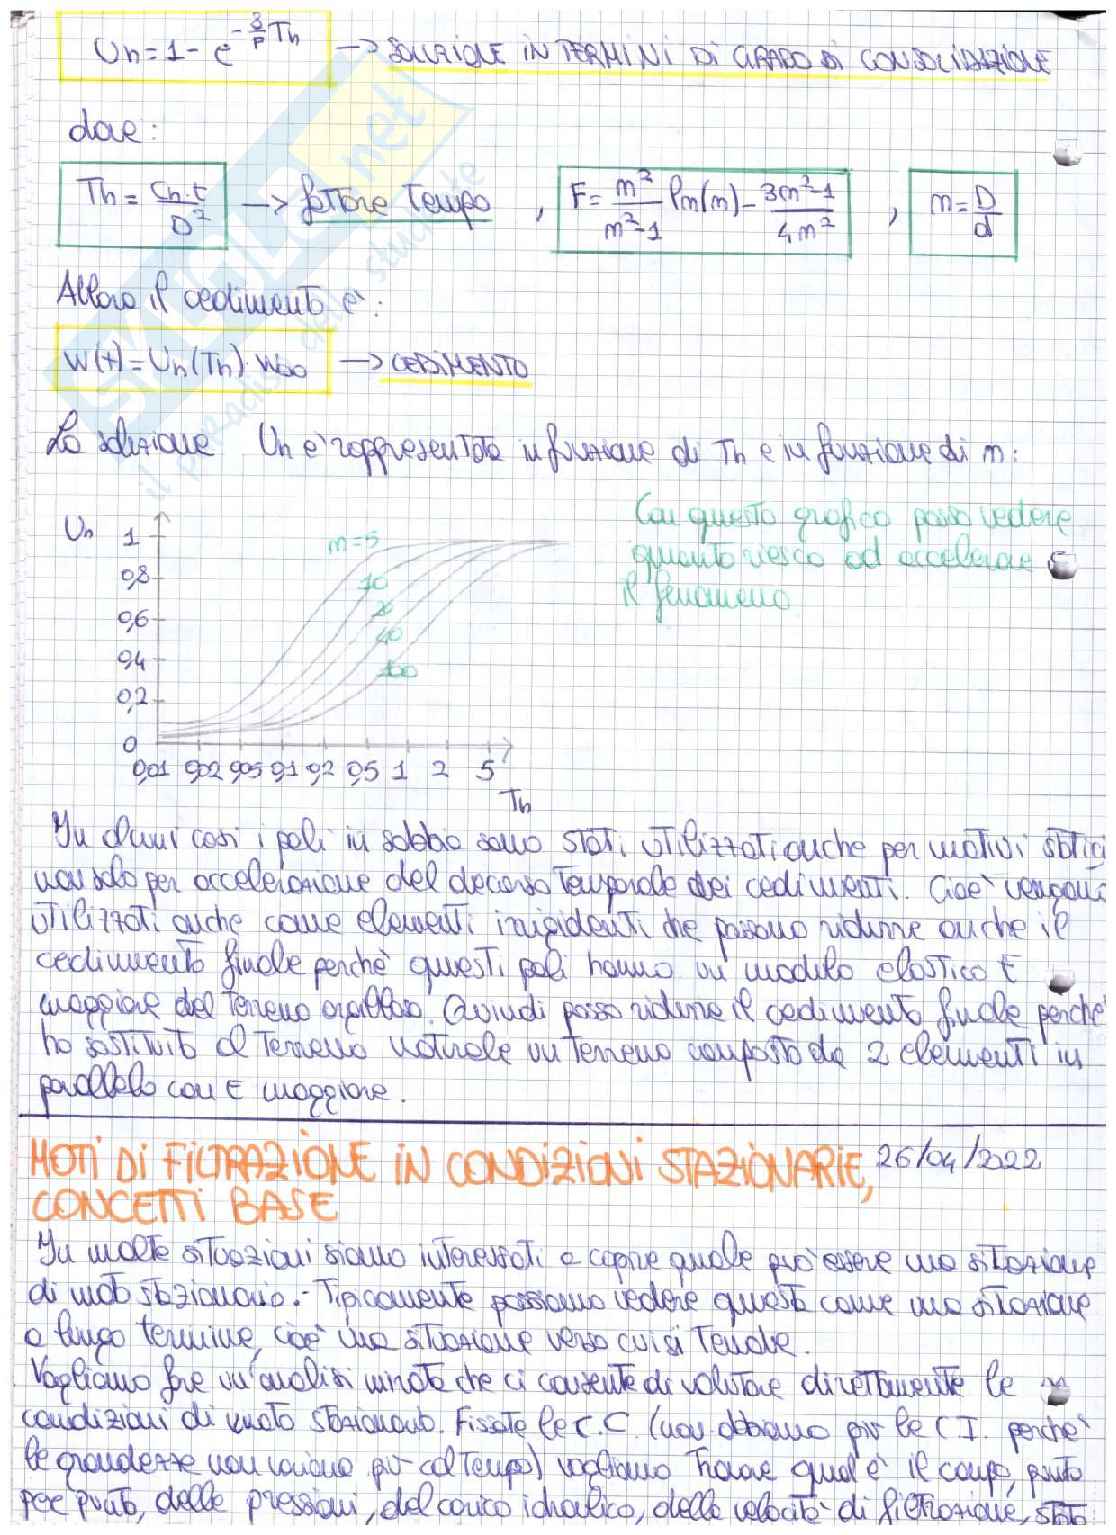 Uh = 1 - e^(-8/F Th) → SOLUZIONE IN TERMINI DI GRADO DI CONSOLIDAZIONE
dove:
Th = Ch·t / D² → fattore Tempo, F = m²/(m²-1) ln(m) - (3m²-1)/(4m²), m = D/d
Allora il cedimento è:
W(t) = Uh(Th)·W∞ → CEDIMENTO
La soluzione Uh è rappresentata in funzione di Th e in funzione di m:
Uh
1
0,8
0,6
0,4
0,2
0
m=5
10
20
40
100
0,01 0,02 0,05 0,1 0,2 0,5 1 2 5
Th
Con questo grafico posso vedere
quanto riesco ad accelerare
il fenomeno
In alcuni casi i pali in sabbia sono stati utilizzati anche per motivi statici
non solo per accelerazione del decorso temporale dei cedimenti. Cioè vengono
utilizzati anche come elementi irrigidenti che possono ridurre anche il
cedimento finale perchè questi pali hanno un modulo elastico E
maggiore del terreno argilloso. Quindi posso ridurre il cedimento finale perchè
ho sostituito al terreno naturale un terreno composto da 2 elementi in
parallelo con E maggiore.
MOTI DI FILTRAZIONE IN CONDIZIONI STAZIONARIE, 26/04/2022
CONCETTI BASE
In molte situazioni siamo interessati a capire quale può essere una situazione
di moto stazionario. Tipicamente possiamo vedere questa come una situazione
a lungo termine, cioè una situazione verso cui si tende.
Vogliamo fare un'analisi mirata che ci consente di valutare direttamente le
condizioni di moto stazionario. Fissate le C.C. (non abbiamo più le C.I. perchè
le grandezze non variano più col tempo) vogliamo trovare qual è il campo, punto
per punto, delle pressioni, del carico idraulico, della velocità di filtrazione, stato
SKUOLA.net
il paradiso dello studente